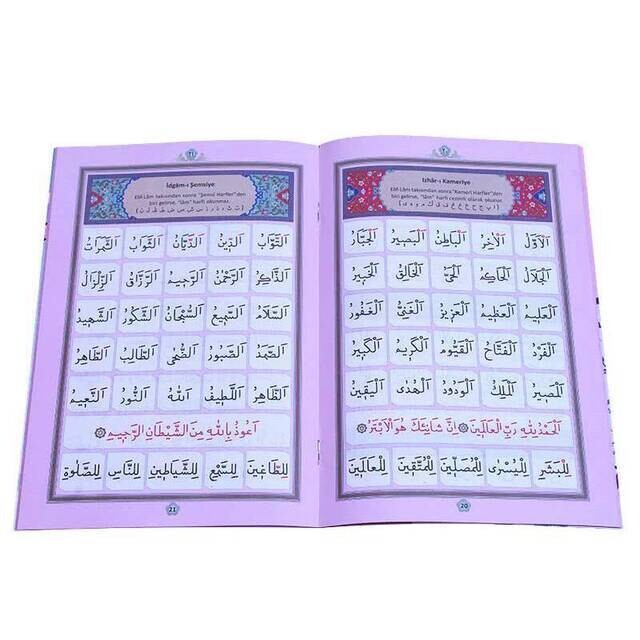 ٢٠
Izhâr-ı Kameriye
Elif-Lâm takısından sonra "Kamerî Harfler"den
biri gelirse, "lâm" harfi cezimli olarak okunur.
اَلْاَوَّلُ اَلْاٰخِرُ اَلْبَاطِنُ اَلْبَصِيرُ اَلْجَبَّارُ
اَلْجَلَالُ اَلْحَاكِمُ اَلْحَيُّ اَلْخَالِقُ اَلْخَبِيرُ
اَلْعَلِيمُ اَلْعَظِيمُ اَلْعَزِيزُ اَلْغَنِيُّ اَلْغَفُورُ
اَلْفَرْدُ اَلْفَتَّاحُ اَلْقَيُّومُ اَلْكَرِيمُ اَلْكَبِيرُ
اَلْمَصِيرُ اَلْمَلِكُ اَلْوَدُودُ اَلْهُدٰى اَلْيَقِينُ
اَلْحَمْدُ لِلّٰهِ رَبِّ الْعَالَمِينَ ۞ اِنَّ شَانِئَكَ هُوَ الْاَبْتَرُ ۞
لِلْبَشَرِ لِلْيُسْرٰى لِلْمُصَلِّينَ لِلْمُتَّقِينَ لِلْعَالَمِينَ
20
٢١
İdgâm-ı Şemsiye
Elif-Lâm takısından sonra "Şemsî Harfler"den
biri gelirse, "lâm" harfi okunmaz.
اَلتَّوَّابُ اَلدِّينُ اَلدَّيَّانُ اَلثَّوَابُ اَلثَّمَرَاتُ
اَلذَّاكِرُ اَلرَّحْمٰنُ اَلرَّحِيمُ اَلرَّزَّاقُ اَلزِّلْزَالُ
اَلسَّلَامُ اَلسَّمِيعُ اَلسُّبْحَانُ اَلشَّكُورُ اَلشَّهِيدُ
اَلصَّمَدُ اَلصَّبُورُ اَلضُّحٰى اَلطَّالِبُ اَلطَّاهِرُ
اَلظَّاهِرُ اَللَّطِيفُ اَللّٰهُ اَلنُّورُ اَلنَّعِيمُ
اَعُوذُ بِاللّٰهِ مِنَ الشَّيْطَانِ الرَّجِيمِ ۞
لِلطَّاغِينَ لِلسَّبْعِ لِلشَّيَاطِينِ لِلنَّاسِ لِلصَّلٰوةِ
21